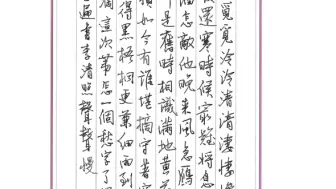 覓覓冷冷清清悽
還寒時候最難將息
怎敵他晚來風急雁
是舊時相識滿地黃
損如今有誰堪摘守著窗
得黑梧桐更兼細雨到
滴這次第怎一個愁字了
書李清照聲聲慢